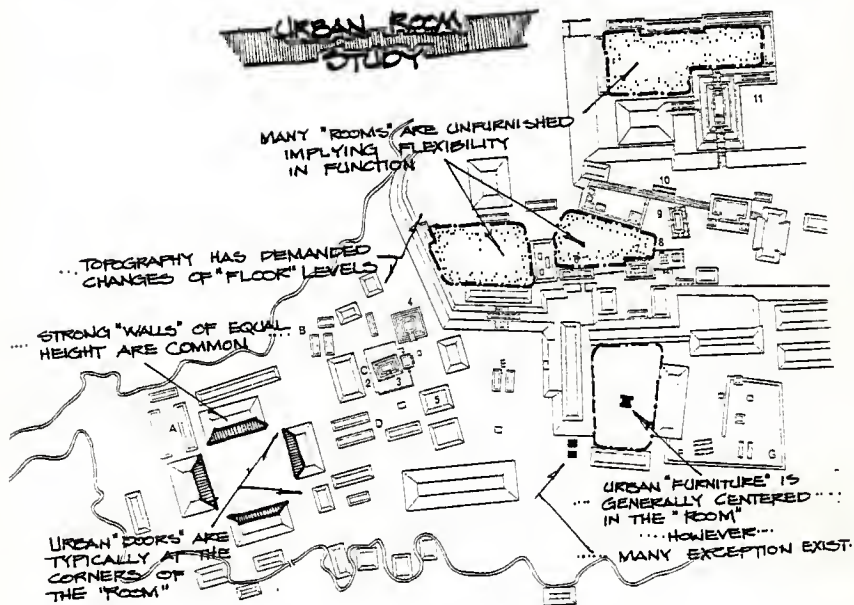 URBAN ROOM
STUDY
MANY "ROOMS" ARE UNFURNISHED
IMPLYING FLEXIBILITY
IN FUNCTION
11
10
9
8
TOPOGRAPHY HAS DEMANDED
CHANGES OF "FLOOR" LEVELS
STRONG "WALLS" OF EQUAL
HEIGHT ARE COMMON
B
4
C
2
3
E
5
A
D
1
F
G
URBAN "DOORS" ARE
TYPICALLY AT THE
CORNERS OF
THE "ROOM"
URBAN "FURNITURE" IS
GENERALLY CENTERED
IN THE "ROOM"
HOWEVER
MANY EXCEPTION EXIST.